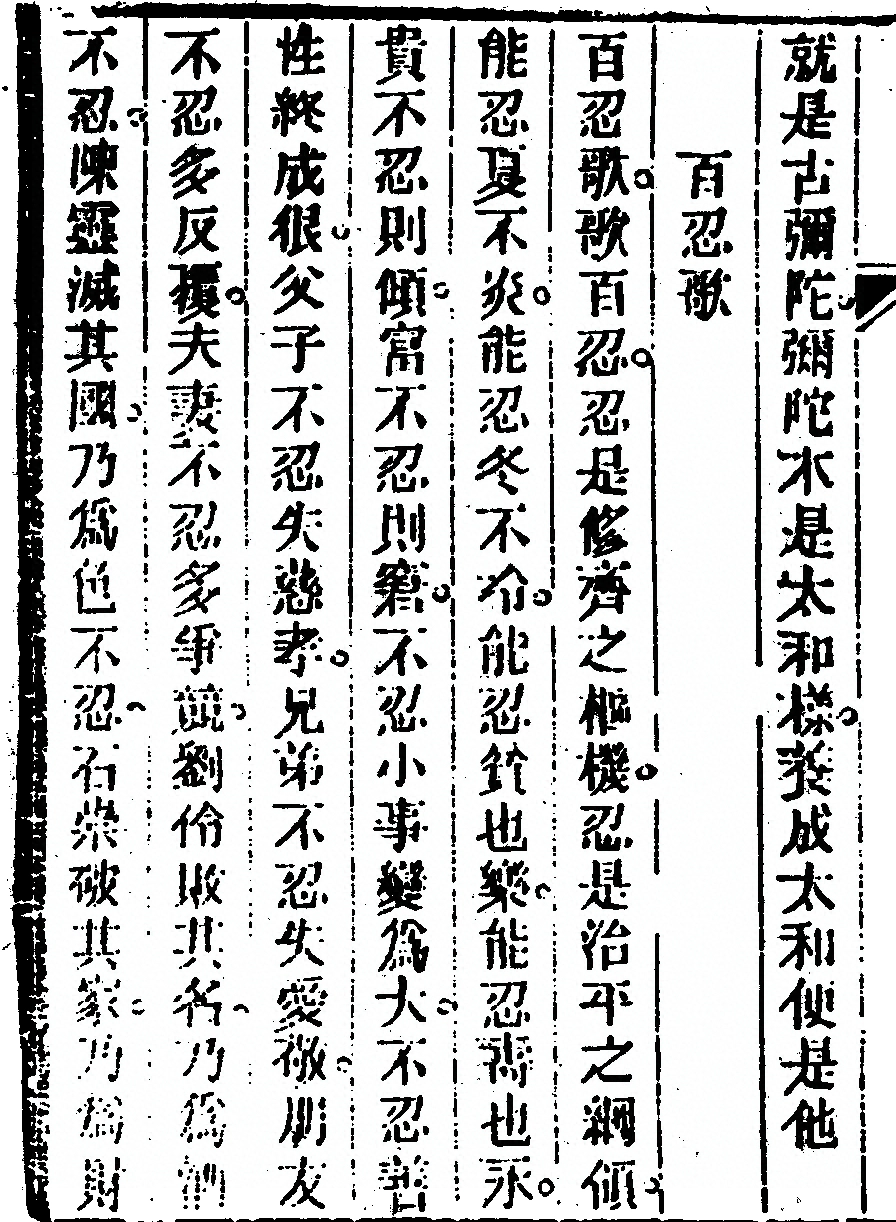 就是古彌陀彌陀本是太和樣養成太和便是他
百忍歌
百忍歌歌百忍忍是修齊之樞機忍是治平之綱領
能忍夏不炎能忍冬不冷能忍貧也樂能忍壽也永
貴不忍則傾富不忍則窘不忍小事變爲大不忍善
性終成很父子不忍失慈孝兄弟不忍失愛敬朋友
不忍多反覆夫妻不忍多爭競劉伶敗其名乃爲酒
不忍陳靈滅其國乃爲色不忍石崇破其家乃爲財